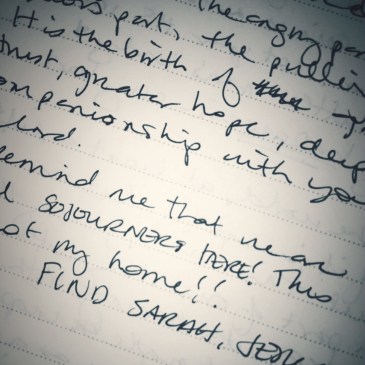 the angry par
part, the pullin
It is the birth of
trust, greater hope, deep
ompanionship with you
Lord.
Remind me that we are
SOJOURNERS HERE! This
not my home!!
FIND SARAH, JESU